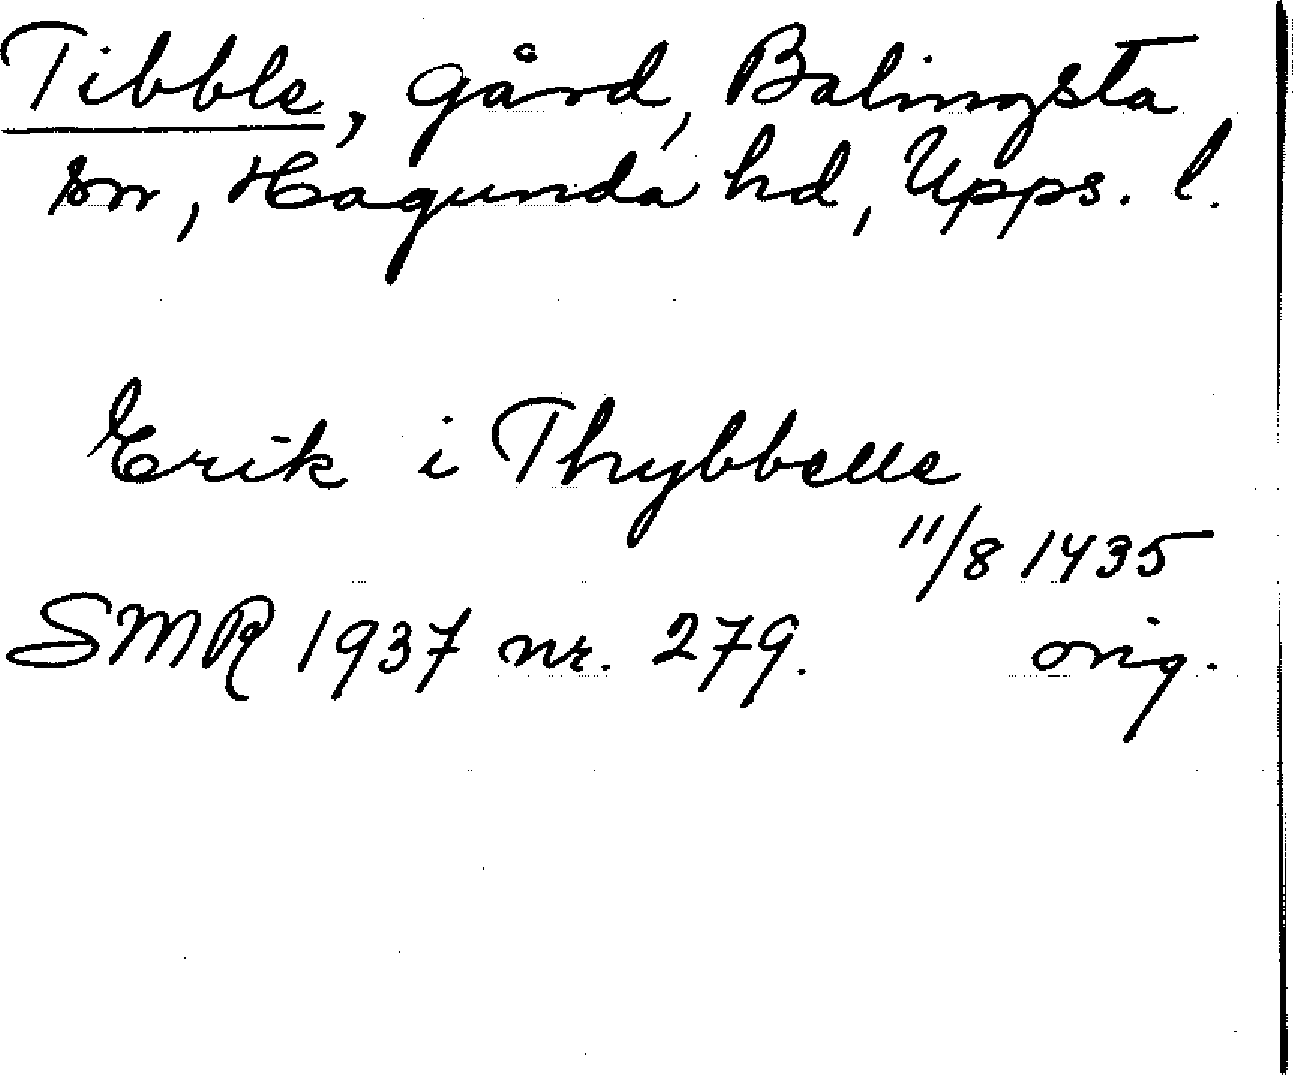 Tibble, gård, Balingsta
sn, Hagunda hd, Upps. l.
Erik i Thybbelle
11/8 1435
SMR 1937 nr. 279. orig.